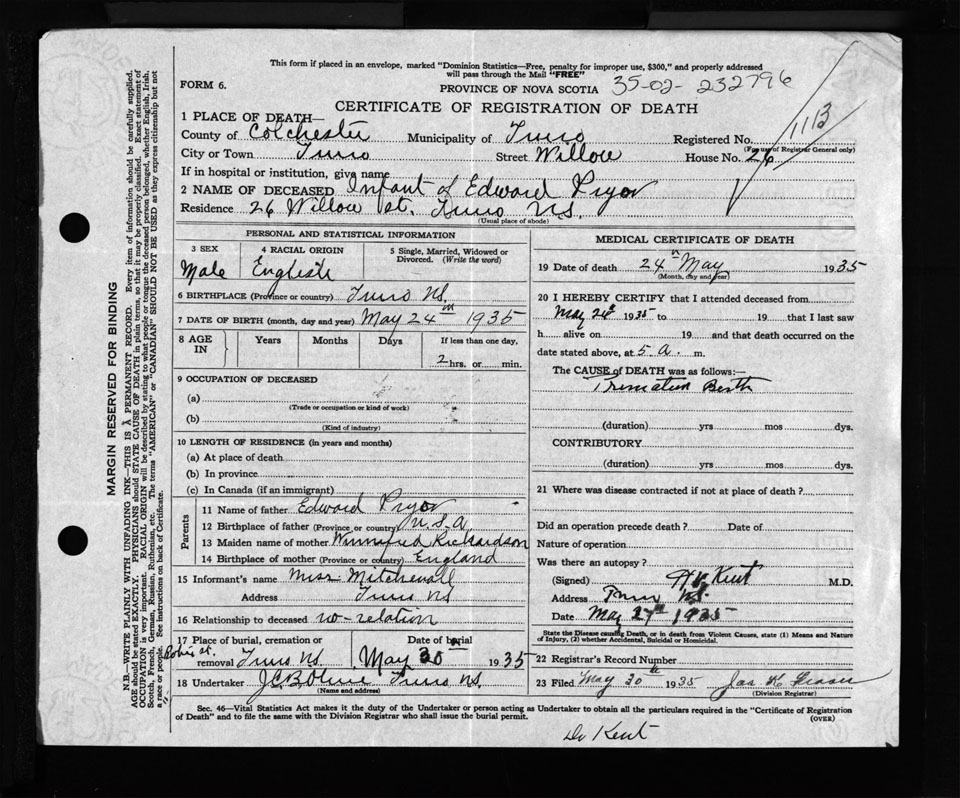 This form if placed in an envelope, marked "Dominion Statistics—Free, penalty for improper use, $300," and properly addressed
will pass through the Mail "FREE"
FORM 6.
PROVINCE OF NOVA SCOTIA 35-02-232796
CERTIFICATE OF REGISTRATION OF DEATH
1 PLACE OF DEATH—
County of Colchester Municipality of Truro Registered No. 1113
(For use of Registrar General only)
City or Town Truro Street Willow House No. 26
If in hospital or institution, give name
2 NAME OF DECEASED Infant of Edward Pryor
Residence 26 Willow St. Truro N.S.
(Usual place of abode)
PERSONAL AND STATISTICAL INFORMATION
3 SEX 4 RACIAL ORIGIN 5 Single, Married, Widowed or
Divorced. (Write the word)
Male English
6 BIRTHPLACE (Province or country) Truro N.S.
7 DATE OF BIRTH (month, day and year) May 24th 1935
8 AGE IN Years Months Days If less than one day,
2 hrs. or min.
9 OCCUPATION OF DECEASED
(a)
(Trade or occupation or kind of work)
(b)
(Kind of industry)
10 LENGTH OF RESIDENCE (in years and months)
(a) At place of death
(b) In province
(c) In Canada (if an immigrant)
Parents
11 Name of father Edward Pryor
12 Birthplace of father (Province or country)
13 Maiden name of mother Winnifred Richardson
14 Birthplace of mother (Province or country) England
15 Informant's name Miss
Address Truro N.S.
16 Relationship to deceased no-relation
17 Place of burial, cremation or Date of burial
Robie St.
removal Truro N.S. May 30th 1935
18 Undertaker Truro N.S.
(Name and address)
MEDICAL CERTIFICATE OF DEATH
19 Date of death 24th May 1935
(Month, day and year)
20 I HEREBY CERTIFY that I attended deceased from
May 24th 1935 to 19 that I last saw
h alive on 19 and that death occurred on the
date stated above, at 5 a. m.
The CAUSE of DEATH was as follows:—
Premature Birth
(duration) yrs mos dys.
CONTRIBUTORY
(duration) yrs mos dys.
21 Where was disease contracted if not at place of death?
Did an operation precede death? Date of
Nature of operation
Was there an autopsy?
(Signed) Kent M.D.
Address Truro N.S.
Date May 27th 1935
State the Disease causing Death, or in death from Violent Causes, state (1) Means and Nature
of Injury, (2) whether Accidental, Suicidal or Homicidal.
22 Registrar's Record Number
23 Filed May 30th 1935 Jas K. Fraser
(Division Registrar)
Sec. 46—Vital Statistics Act makes it the duty of the Undertaker or person acting as Undertaker to obtain all the particulars required in the "Certificate of Registration
of Death" and to file the same with the Division Registrar who shall issue the burial permit.
(OVER)
Dr Kent
MARGIN RESERVED FOR BINDING
N.B.—WRITE PLAINLY WITH UNFADING INK—THIS IS A PERMANENT RECORD. Every item of information should be carefully supplied.
AGE should be stated EXACTLY. PHYSICIANS should STATE CAUSE OF DEATH in plain terms, so that it may be properly classified. Exact statement of
OCCUPATION is very important. RACIAL ORIGIN will be described by stating to what people or tongue the deceased person belonged, whether English, Irish,
Scotch, French, German, Russian, Ruthenian, etc. The terms "AMERICAN" or "CANADIAN" SHOULD NOT BE USED as they express citizenship but not
a race or people. See instructions on back of Certificate.